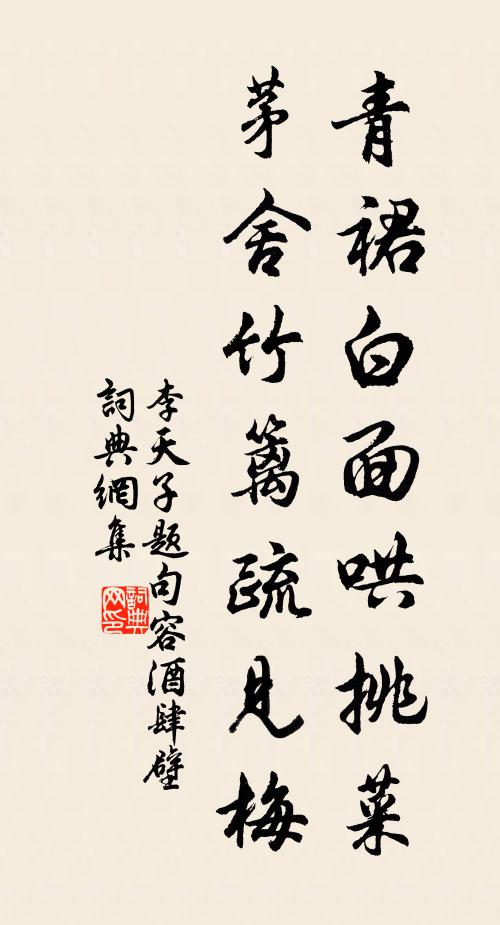 青裙白面哄挑菜
茅舍竹篱疏見梅
李天子題句容酒肆壁
詞典網集
詞典
网印